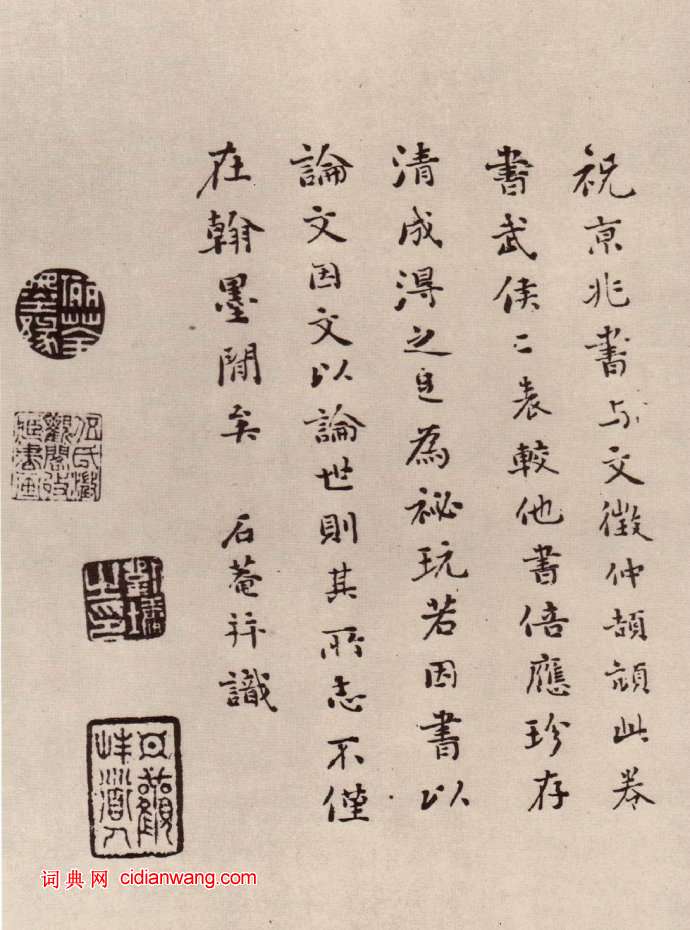 祝京兆書与文徵仲頡頏此卷
書武侯二表較他書倍應珍存
清成得之足為祕玩若因書以
論文因文以論世則其所志不僅
在翰墨間矣 石菴并識
劉墉之印
日觀峰道人
词典网 cidianwang.com